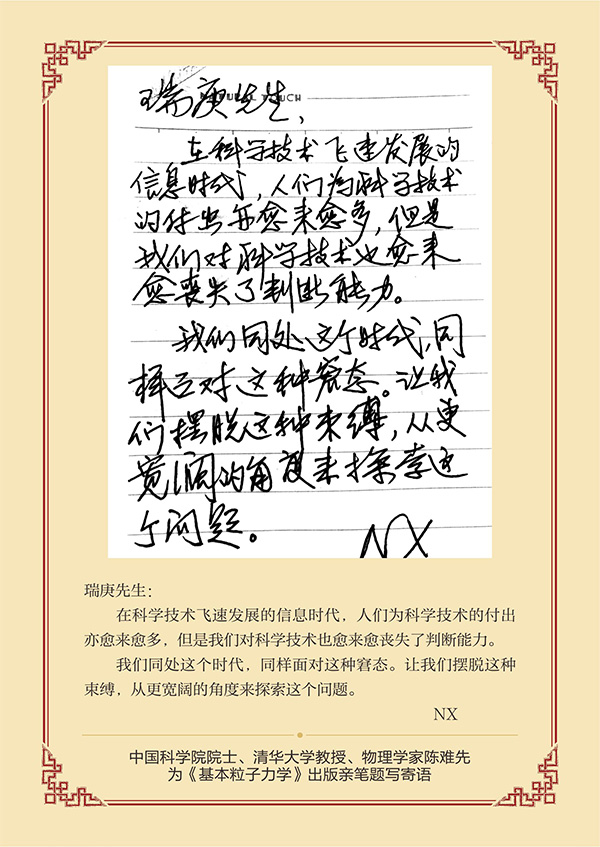 瑞庚先生，
在科学技术飞速发展的
信息时代，人们为科学技术
的付出亦愈来愈多，但是
我们对科学技术也愈来
愈丧失了判断能力。
我们同处这个时代，同
样面对这种窘态。让我
们摆脱这种束缚，从更
宽阔的角度来探索这
个问题。
NX
瑞庚先生：
在科学技术飞速发展的信息时代，人们为科学技术的付出
亦愈来愈多，但是我们对科学技术也愈来愈丧失了判断能力。
我们同处这个时代，同样面对这种窘态。让我们摆脱这种
束缚，从更宽阔的角度来探索这个问题。
NX
中国科学院院士、清华大学教授、物理学家陈难先
为《基本粒子力学》出版亲笔题写寄语